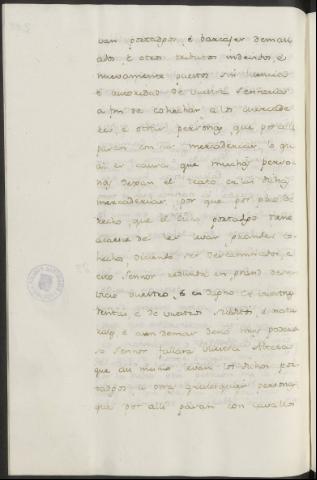 van portadgos, é barcajes demasi
ados, é otros tributos indevidos, é
nuevamente puestos sin licencia
é autoridad de vuestra Señoria
a fin de cohechar a los mercade
res, é otras personas que por alli
pasan con sus mercaderias, lo qu
al es causa que muchas perso
nas dexan el trato en las dichas
mercaderias, por que por poco de
hecho, que el dicho portadgo tiene
de les levar grandes co
hechos diciendo ser descaminados, é
esto Sennor redunda en grand deser
vicio vuestro, é en dapno de vuestras
rentas é de vuestros subditos, é natu
rales, é aun demas desto muy podero
so Sennor fallará vuestra Alteza
que asi mismo levan los dichos por
tadgos, a otras qualesquier personas
que por alli pasan con cavallos